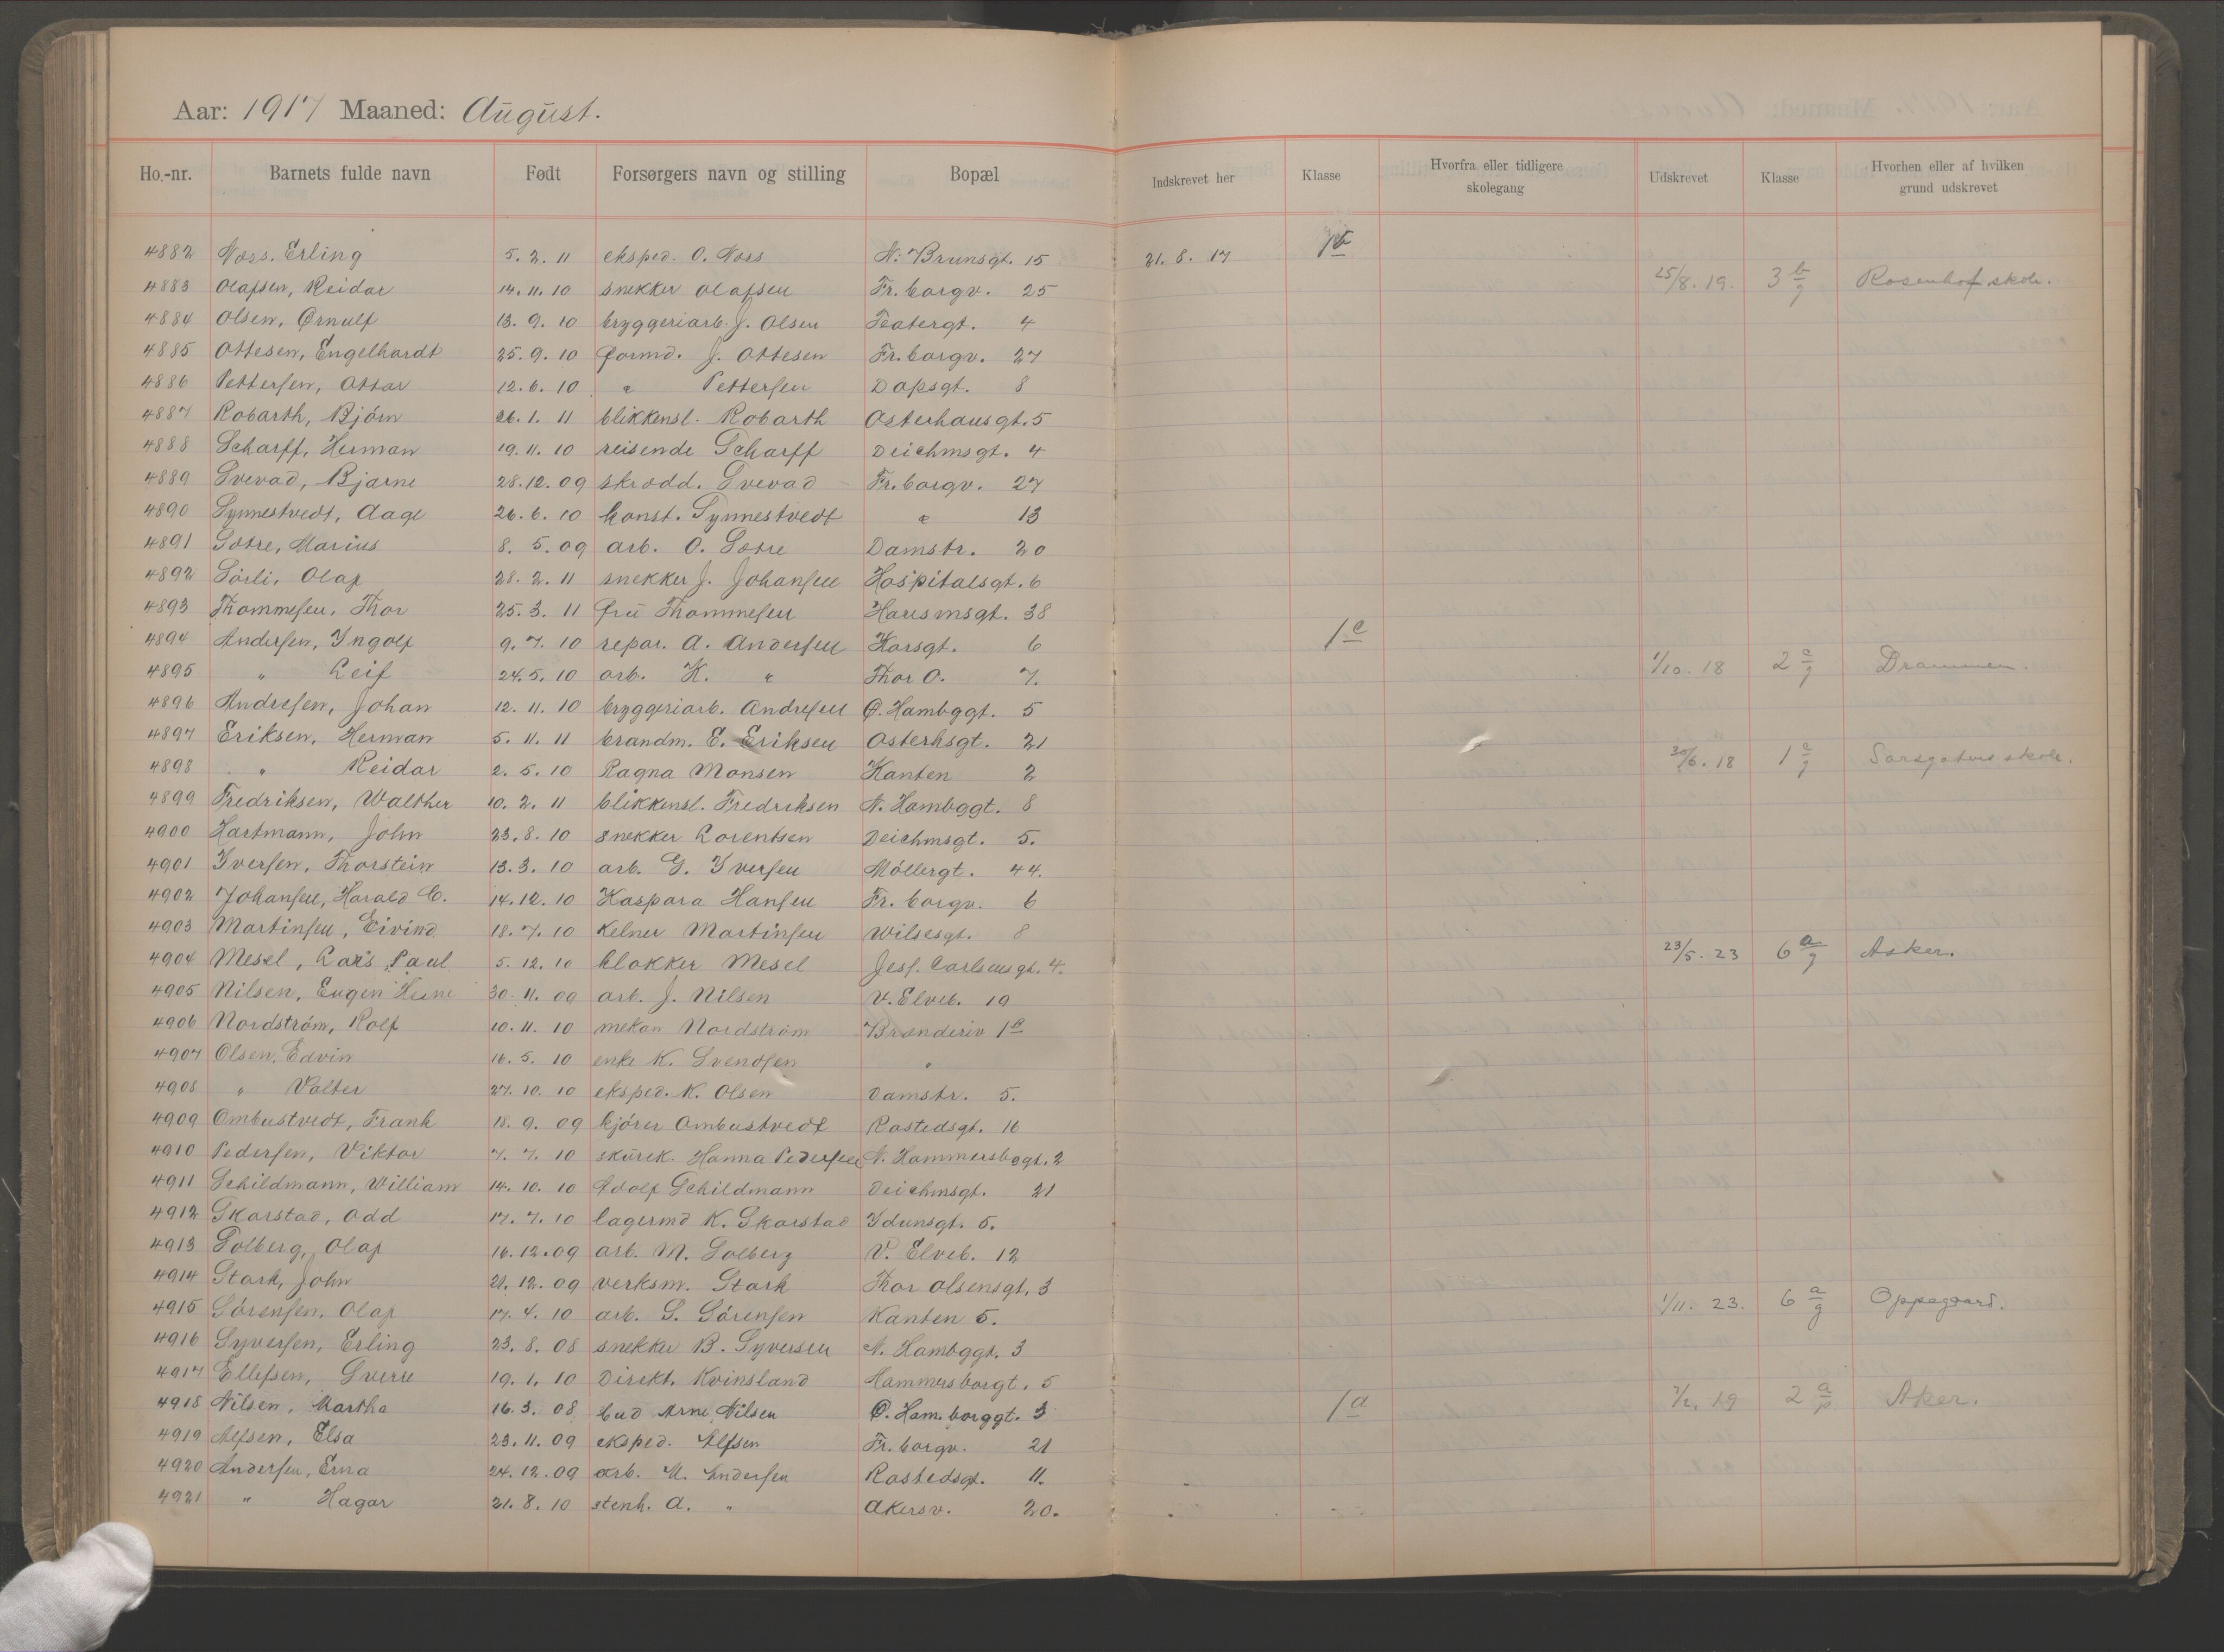 Aar: 1917 Maaned: August.
Ho.-nr. Barnets fulde navn Født Forsørgers navn og stilling Bopæl Indskrevet her Klasse Hvorfra eller tidligere skolegang Udskrevet Klasse Hvorhen eller af hvilken grund udskrevet
4882 Næss, Erling 5.2.11 eksped. O. Næss N. Brunsgt. 15 21.8.17 1b
4883 Olafsen, Reidar 14.11.10 snekker Olafsen Fr.borgv. 25 25/8.19. 3 b/g Rosenhof skole.
4884 Olsen, Ørnulf 13.9.10 bryggeriarb. J. Olsen Teatergt. 4
4885 Ottesen, Engelhardt 25.9.10 formd. J. Ottesen Fr.borgv. 27
4886 Pettersen, Ottar 12.6.10 " Pettersen Dopsgt. 8
4887 Robarth, Bjørn 26.1.11 blikkensl. Robarth Osterhausgt. 5
4888 Scharff, Herman 19.11.10 reisende Scharff Deichmsgt. 4
4889 Svevad, Bjarne 28.12.09 skrædd. Svevad Fr.borgv. 27
4890 Synnestvedt, Aage 26.6.10 konst. Synnestvedt " 13
4891 Sætre, Marius 8.5.09 arb. O. Sætre Damstr. 20
4892 Sörli, Olaf 28.2.11 snekker J. Johansen Hospitalsgt. 6
4893 Thommesen, Thor 25.3.11 fru Thommesen Hausmsgt. 38
4894 Andersen, Yngolf 9.7.10 repar. A. Andersen Korsgt. 6 1c
4895 " Leif 24.5.10 arb. K. " Thor O. 7. 1/10.18 2 a/g Drammen.
4896 Andresen, Johan 12.11.10 bryggeriarb. Andresen Ø. Hambggt. 5
4897 Eriksen, Herman 5.11.11 brandm. E. Eriksen Osterhsgt. 21
4898 " Reidar 2.5.10 Ragna Monsen Kanten 2 30/6.18 1 a/g Sarsgatens skole.
4899 Fredriksen, Walther 10.2.11 blikkensl. Fredriksen N. Hambggt. 8
4900 Hartmann, John 23.8.10 snekker Lorentsen Deichmsgt. 5.
4901 Yversen, Thorstein 13.3.10 arb. G. Yversen Möllergt. 44.
4902 Johansen, Harald C. 14.12.10 Kaspara Hansen Fr.borgv. 6
4903 Martinsen, Eivind 18.7.10 Kelner Martinsen Wilsesgt. 8
4904 Mesel, Lars Paul 5.12.10 klokker Mesel Jess. Carlsensgt. 4. 23/5.23 6 a/g Asker.
4905 Nilsen, Eugen 30.11.09 arb. J. Nilsen V. Elveb. 19
4906 Nordström, Rolf 10.11.10 mekan Nordström Brænderiv 1a
4907 Olsen, Edvin 16.5.10 enke K. Svendsen "
4908 " Valter 27.10.10 eksped. K. Olsen Damstr. 5.
4909 Ombustvedt, Frank 18.9.09 kjörer Ombustvedt Rostedsgt. 16
4910 Pedersen, Viktor 7.7.10 skurek. Hanna Pedersen N. Hammersbggt. 2
4911 Schildmann, William 14.10.10 Adolf Schildmann Deichmsgt. 21
4912 Skarstad, Odd 17.7.10 lagermd K. Skarstad Ydunsgt. 5.
4913 Solberg, Olaf 16.12.09 arb. M. Solberg V. Elveb. 12
4914 Stark, John 21.12.09 verksm. Stark Thor Olsensgt. 3
4915 Sörensen, Olaf 17.4.10 arb. S. Sörensen Kanten 5. 1/11.23. 6 a/g Oppegaard.
4916 Syversen, Erling 23.8.08 snekker B. Syversen N. Hambggt. 3
4917 Ellefsen, Sverre 19.1.10 Direkt. Kvinsland Hammersborgt. 5
4918 Nilsen, Martha 16.3.08 bud Arne Nilsen Ø. Ham.borggt. 3 1a 7/2.19 2 a/p Aker.
4919 Alfsen, Elsa 23.11.09 eksped. Alfsen Fr.borgv. 21
4920 Andersen, Erna 24.12.09 arb. M. Andersen Rostedsgt. 11.
4921 " Hagar 21.8.10 stenh. A. " Akersv. 20.